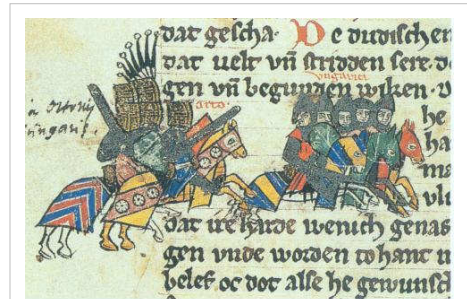 dat gescha· De dudischen
dat velt vn̄ stridden sere· d
gen vn̄ begunden wiken· v
ungarici
otto·
he
ha
ma
vli
dat ire harde wenich genas
gen vnde worden to hant
belef oc dot alse he gewunsch